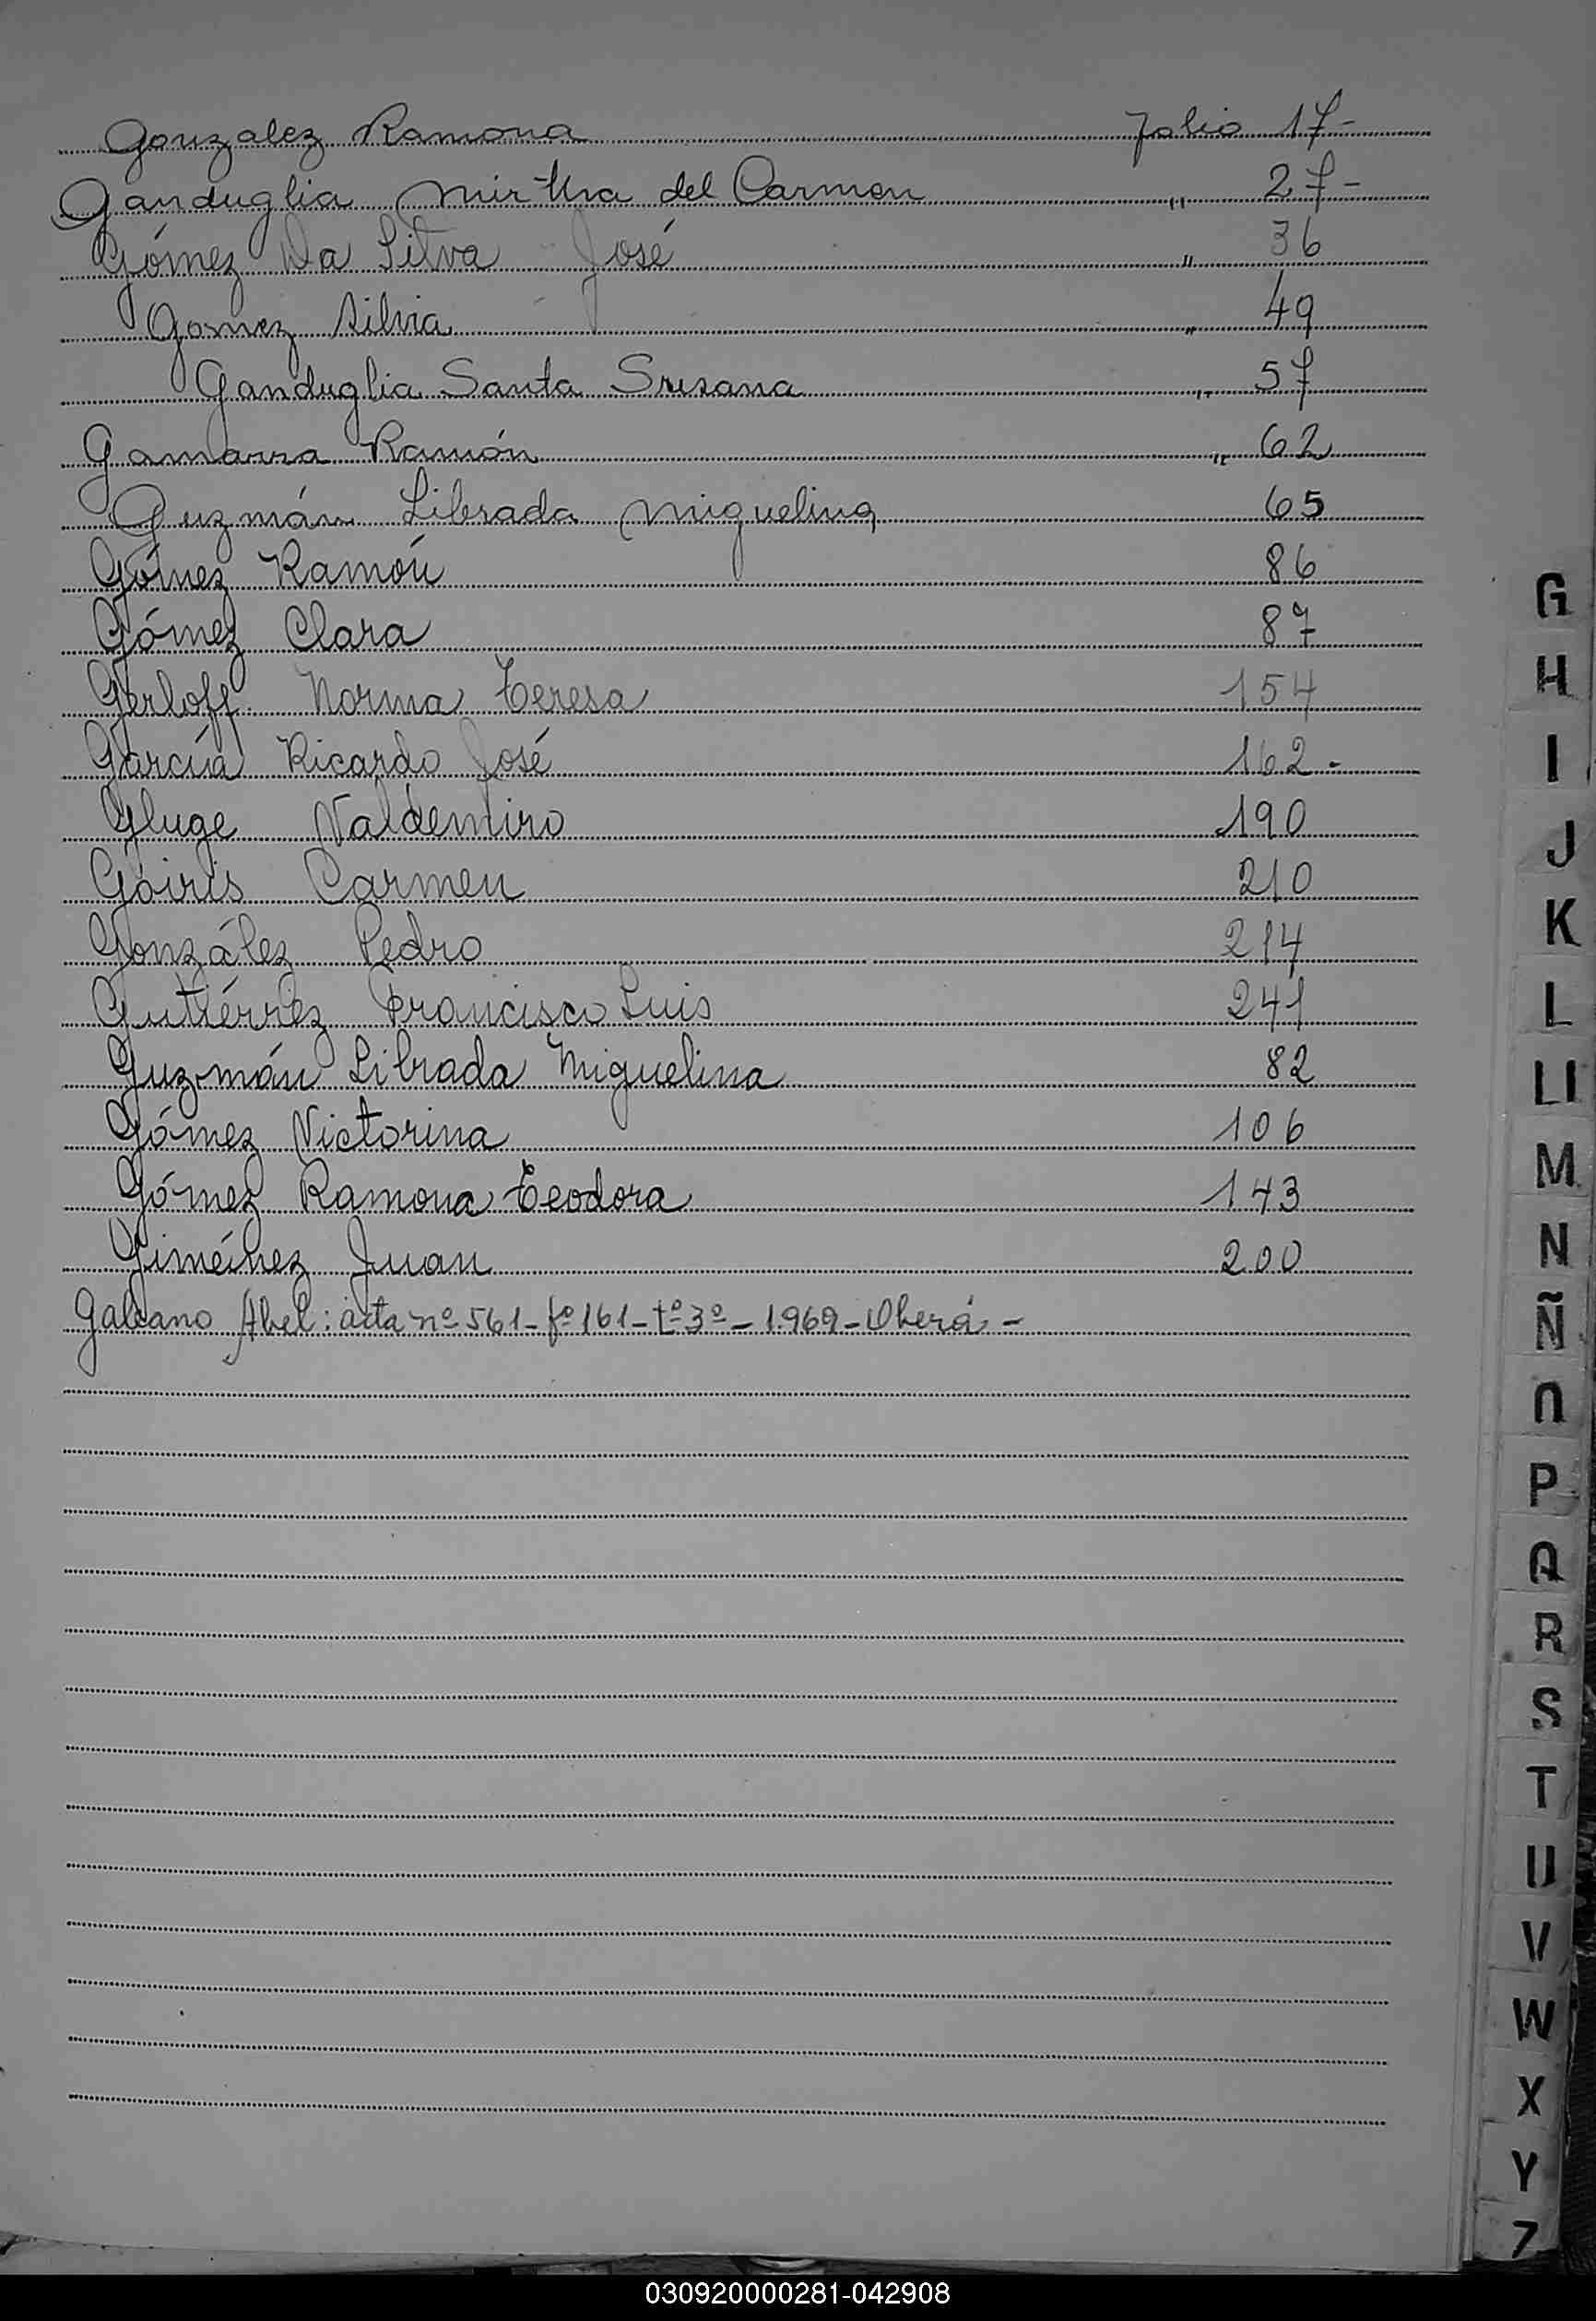 Gonzalez Ramona folio 17-
Ganduglia Mirtha del Carmen " 27-
Gómez Da Silva José " 36
Gomez Silvia " 49
Ganduglia Santa Susana " 57
Gamarra Ramón " 62
Guzmán Librada Miguelina 65
Gómez Ramón 86
Gómez Clara 87
Gerloff Norma Teresa 154
García Ricardo José 162-
Gluge Valdemiro 190
Góiris Carmen 210
González Pedro 214
Gutiérrez Francisco Luis 241
Guzmán Librada Miguelina 82
Gómez Victorina 106
Gómez Ramona Teodora 143
Giménez Juan 200
Galeano Abel: acta nº 561- fº 161- tº 3º- 1.969- Oberá-
G
H
I
J
K
L
Ll
M
N
Ñ
O
P
Q
R
S
T
U
V
W
X
Y
Z
030920000281-042908